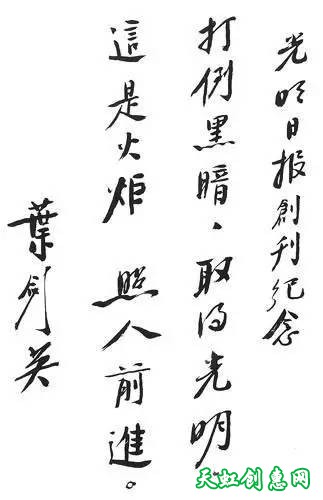 光明日报創刊纪念
打倒黑暗、取得光明，
這是火炬 照人前進。
葉剑英
天虹创意网